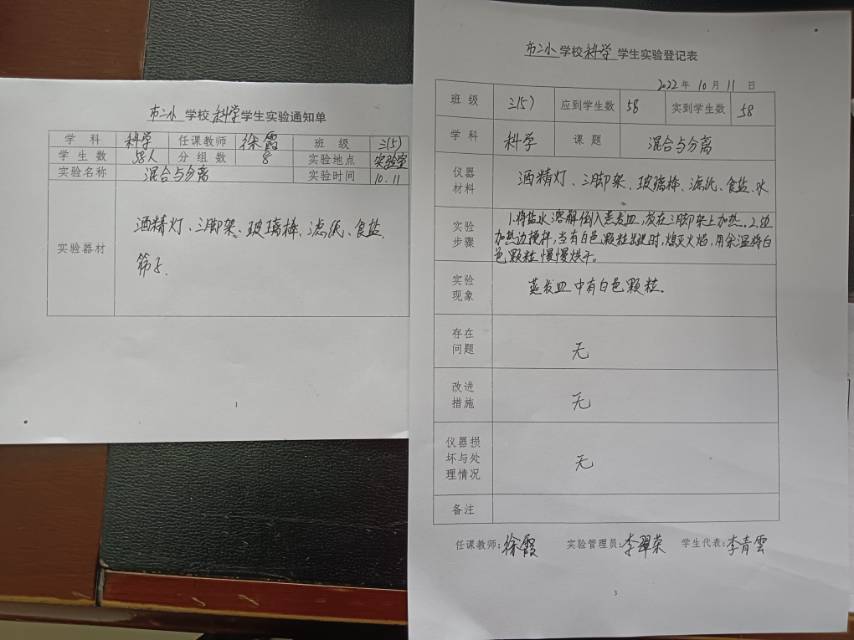 市二小 学校 科学 学生实验通知单
学 科 科学 任课教师 徐霞 班 级 三(5)
学 生 数 58人 分 组 数 8 实验地点 实验室
实验名称 混合与分离 实验时间 10.11
实验器材
酒精灯、三脚架、玻璃棒、滤纸、食盐
筛子.
1
市二小 学校 科学 学生实验登记表
2022 年 10 月 11 日
班 级 三(5) 应到学生数 58 实到学生数 58
学 科 科学 课 题 混合与分离
仪器
材料
酒精灯、三脚架、玻璃棒、滤纸、食盐、水
实验
步骤
1.将盐水溶解倒入蒸发皿,放在三脚架上加热。2.边
加热边搅拌,当有白色颗粒出现时,熄灭火焰,用余温将白
色颗粒慢慢烘干。
实验
现象
蒸发皿中有白色颗粒。
存在
问题
无
改进
措施
无
仪器损
坏与处
理情况
无
备注
任课教师:徐霞 实验管理员:李翠荣 学生代表:李青雲